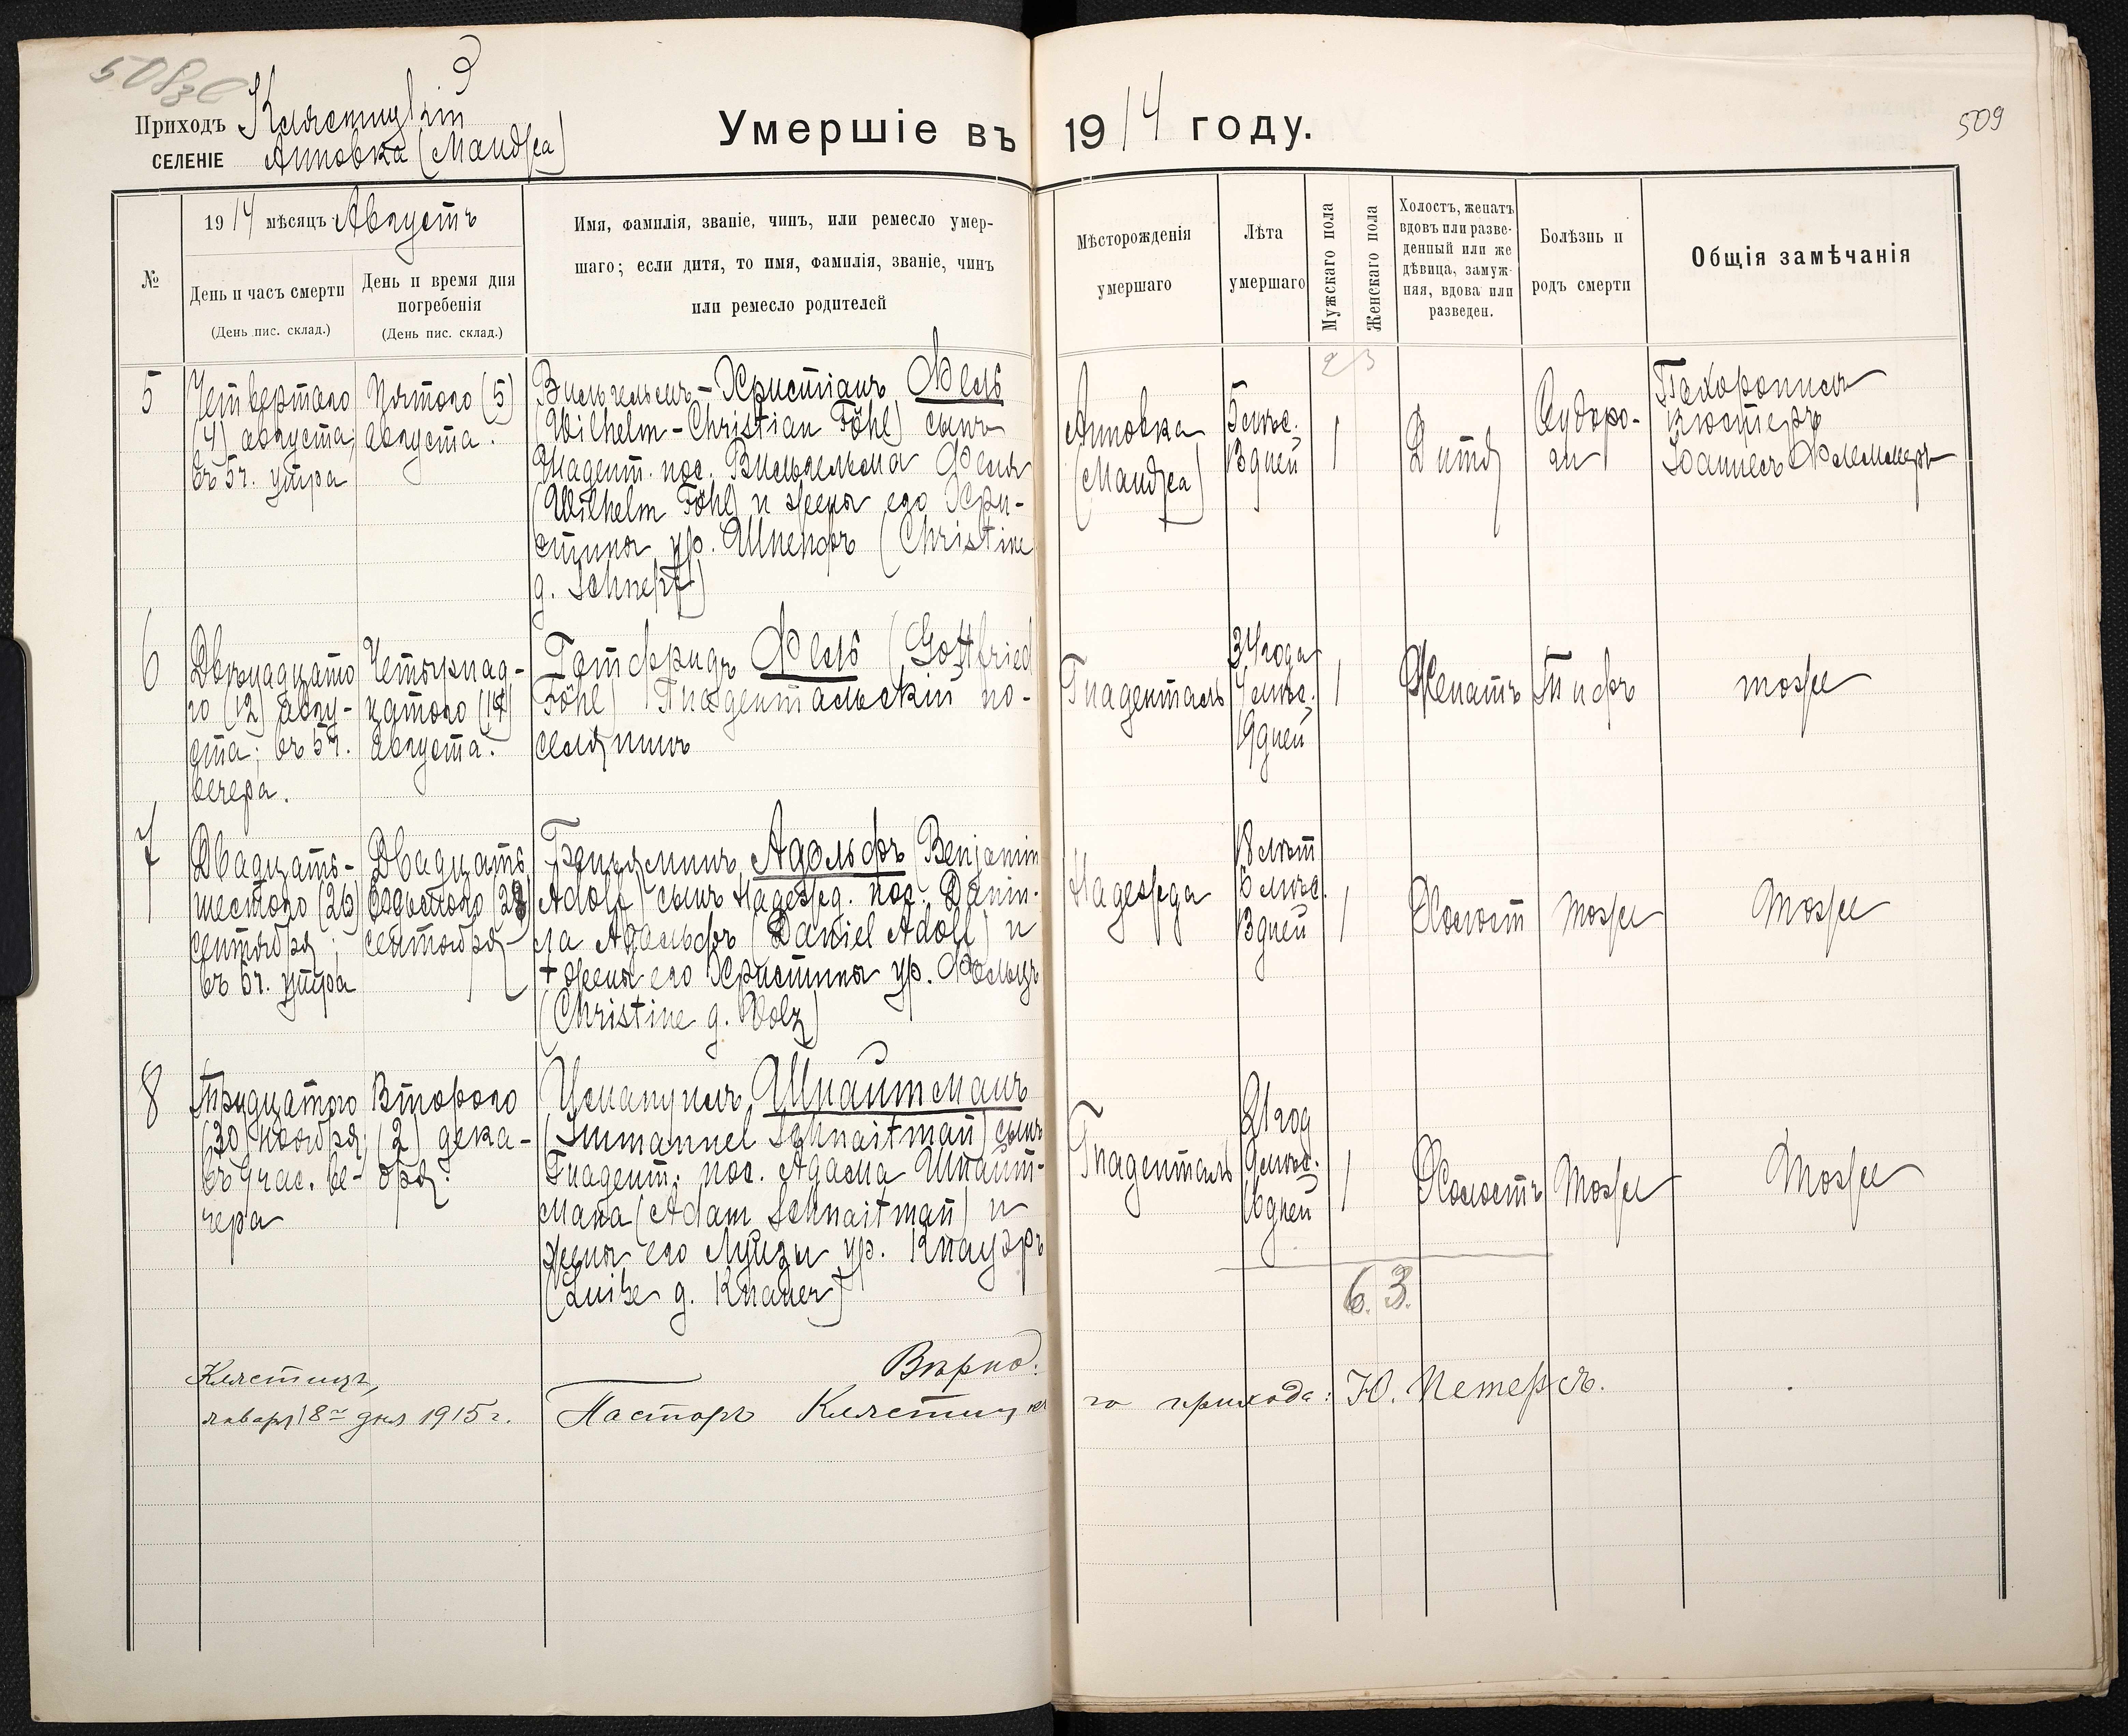 508
3
Приходъ Клястицкій
СЕЛЕНІЕ Анновка (Манджа)
Умершіе въ 1914 году.
509
№
1914 мѣсяцъ Августъ
День и часъ смерти
(День пис. склад.)
День и время дня
погребенія
(День пис. склад.)
Имя, фамилія, званіе, чинъ, или ремесло умер-
шаго; если дитя, то имя, фамилія, званіе, чинъ
или ремесло родителей
Мѣсторожденія
умершаго
Лѣта
умершаго
Мужскаго пола
Женскаго пола
Холостъ, женатъ
вдовъ или разве-
денный или же
дѣвица, замуж-
няя, вдова или
разведен.
Болѣзнь и
родъ смерти
Общія замѣчанія
2 3
5
Четвертаго
(4) августа;
въ 5 ч. утра
Пятого (5)
августа.
Вильгельмъ-Христіанъ Фель
(Wilhelm-Christian Föhl) сынъ
Гнадент. пос. Вильгельма Феля
(Wilhelm Föhl) и жены его Хри-
стины ур. Шнепфъ (Christine
g. Schnepf)
Анновка
(Манджа)
5 мѣс.
13 дней
1
Дитя
Судоро-
ги
Похоронилъ
кюстеръ
Іоаннесъ Флеммеръ
6
Двѣнадцато
го (12) авгу-
ста; въ 5 ч.
вечера.
Четырнад-
цатого (14)
августа.
Готфридъ Фель (Gottfried
Föhl) Гнадентальскій по-
селянинъ
Гнаденталь
34 года
4 мѣс.
19 дней
1
Женатъ
Тифъ
тоже
7
Двадцать-
шестого (26)
сентября;
въ 5 ч. утра
Двадцать
восьмого (28)
сентября
Беньяминъ Адольфъ (Benjamin
Adolf) сынъ Надежд. пос. Дани-
ла Адольфъ (Daniel Adolf) и
+ жены его Христины ур. Фольцъ
(Christine g. Volz)
Надежда
18 лѣт
6 мѣс.
13 дней
1
Холост
тоже
тоже
8
Тридцатого
(30) ноября;
въ 9 час. ве-
чера
Второго
(2) дека-
бря.
Иммануилъ Шнайтманъ
(Immanuel Schnaitmañ) сынъ
Гнадент. пос. Адама Шнайт-
мана (Adam Schnaitmañ) и
жены его Луизы ур. Кнауэръ
(Luise g. Knauer)
Гнаденталь
21 год
9 мѣс.
16 дней
1
Холостъ
Тоже
Тоже
6. 3.
Клястицъ,
января 8го дня 1915 г.
Вѣрно:
Пасторъ Клястицкаго прихода: Ю. Петерсъ.